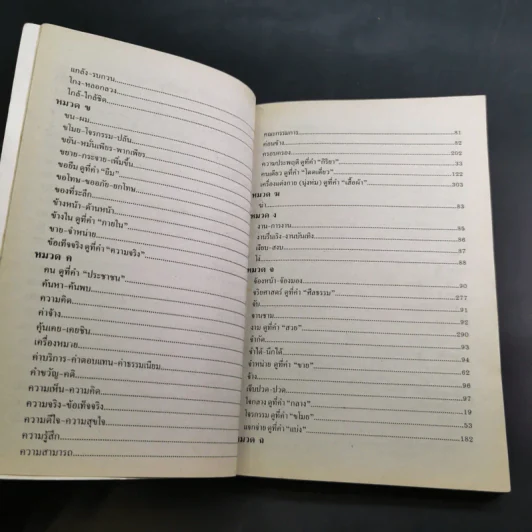 แกล้ง-รบกวน
โกง-หลอกลวง
ใกล้-ใกล้ชิด
หมวด ข
ขน-ผม
ขโมย-โจรกรรม-ปล้น
ขยัน-หมั่นเพียร-พากเพียร
ขยาย-กระจาย-เพิ่มขึ้น
ขอยืม ดูที่คำ "ยืม"
ขอโทษ-ขออภัย-ยกโทษ
ของที่ระลึก
ข้างหน้า-ด้านหน้า
ข้างใน ดูที่คำ "ภายใน"
ขาย-จำหน่าย
ข้อเท็จจริง ดูที่คำ "ความจริง"
หมวด ค
คน ดูที่คำ "ประชาชน"
ค้นหา-ค้นพบ
ความคิด
ค่าจ้าง
คุ้นเคย-เคยชิน
เครื่องหมาย
ค่าบริการ-ค่าตอบแทน-ค่าธรรมเนียม
ค่าขวัญ-คติ
ความเห็น-ความคิด
ความจริง-ข้อเท็จจริง
ความดีใจ-ความสุขใจ
ความรู้สึก
ความสามารถ
คณะกรรมการ 81
ค่อนข้าง 84
ครอบครอง 202
ความประพฤติ ดูที่คำ "กิริยา" 33
คนเดียว ดูที่คำ "โดดเดี่ยว" 122
เครื่องแต่งกาย (นุ่งห่ม) ดูที่คำ "เสื้อผ้า" 303
หมวด ฆ
ฆ่า 85
หมวด ง
งาน-การงาน 85
งานรื่นเริง-งานบันเทิง 86
เงียบ-สงบ 87
โง่ 88
หมวด จ
จ้องหน้า-จ้องมอง 90
จริยศาสตร์ ดูที่คำ "ศีลธรรม" 277
จับ 90
จานชาม 92
งาม ดูที่คำ "สวย" 290
จำกัด 93
จำได้-นึกได้ 94
จำหน่าย ดูที่คำ "ขาย" 62
จ้าง 96
เจ็บปวด-ปวด 97
ใจกลาง ดูที่คำ "กลาง" 19
โจรกรรม ดูที่คำ "ขโมย" 53
แจกจ่าย ดูที่คำ "แบ่ง" 182
หมวด ฉ